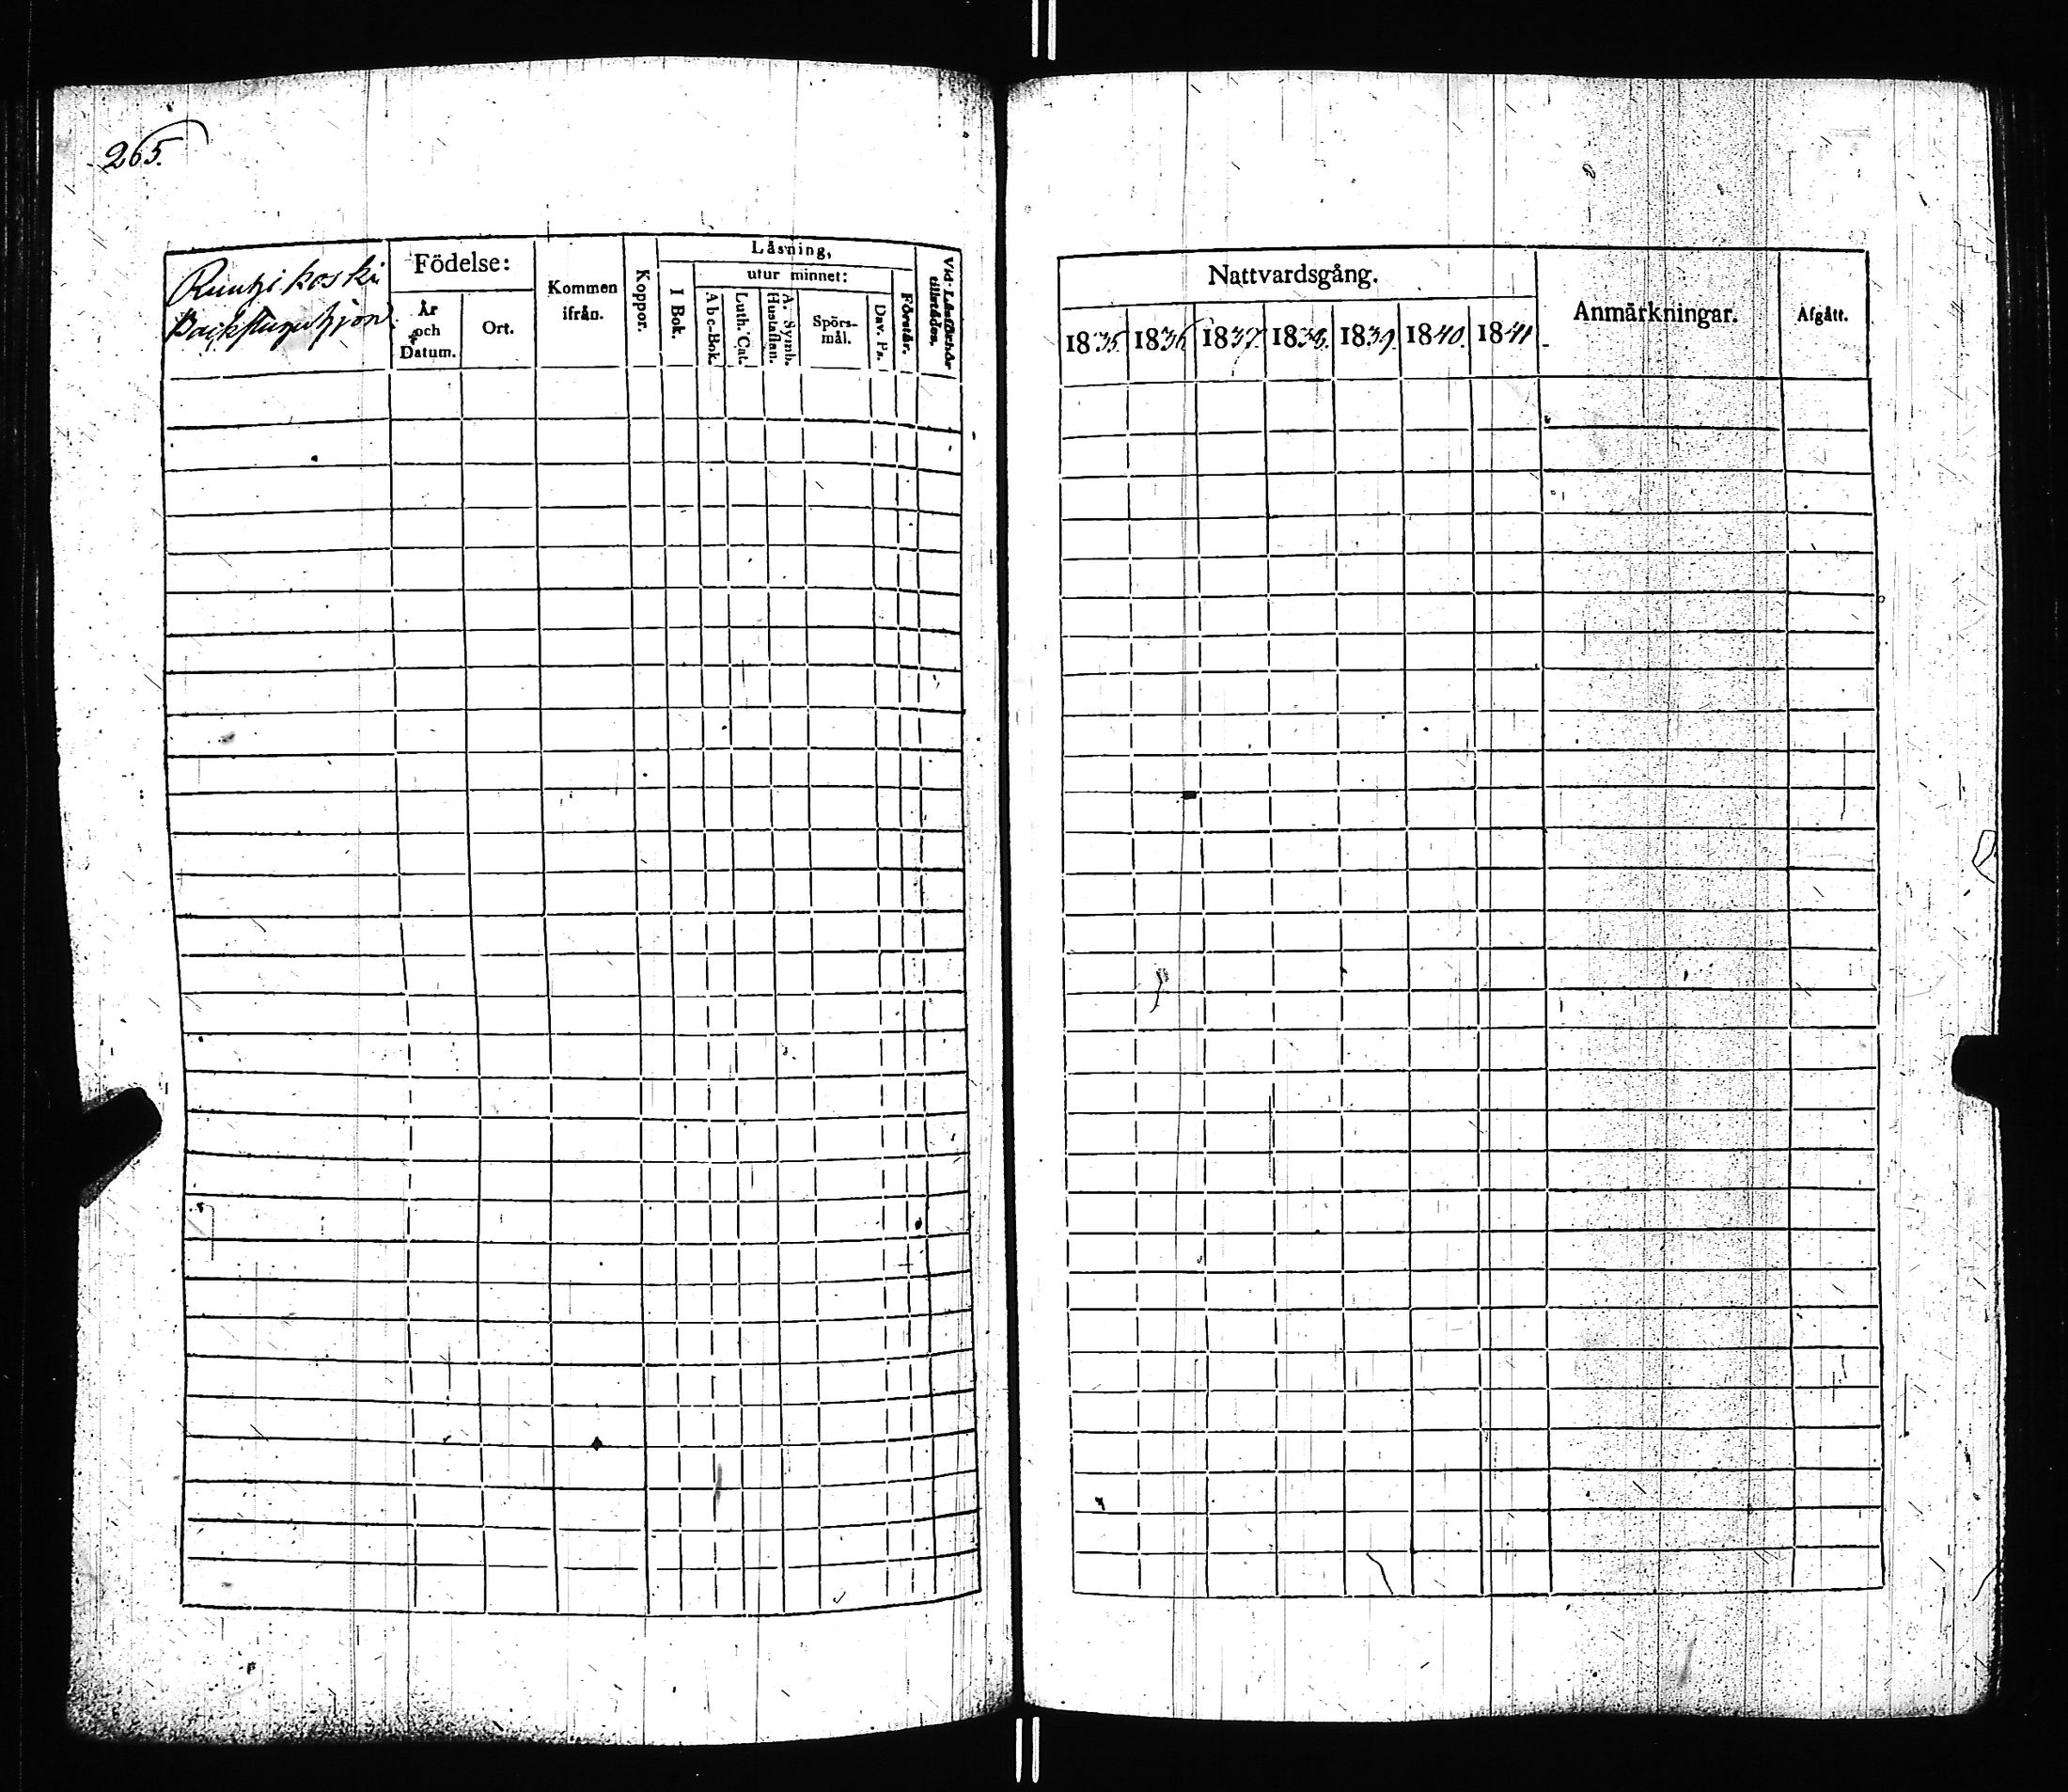 265.
Runtzi koski
Backstuguhjon
Födelse:
År
och
Datum.
Ort.
Kommen
ifrån.
Koppor.
Läsning,
I Bok.
utur minnet:
Abc-Bok.
Luth. Cat.
A. Symb.
Hustaflan.
Spörs-
mål.
Dav. Ps.
Förstår.
Vid Läsförhör
tillstädes.
Nattvardsgång.
1835. 1836 1837. 1838. 1839. 1840. 1841
Anmärkningar.
Afgått.